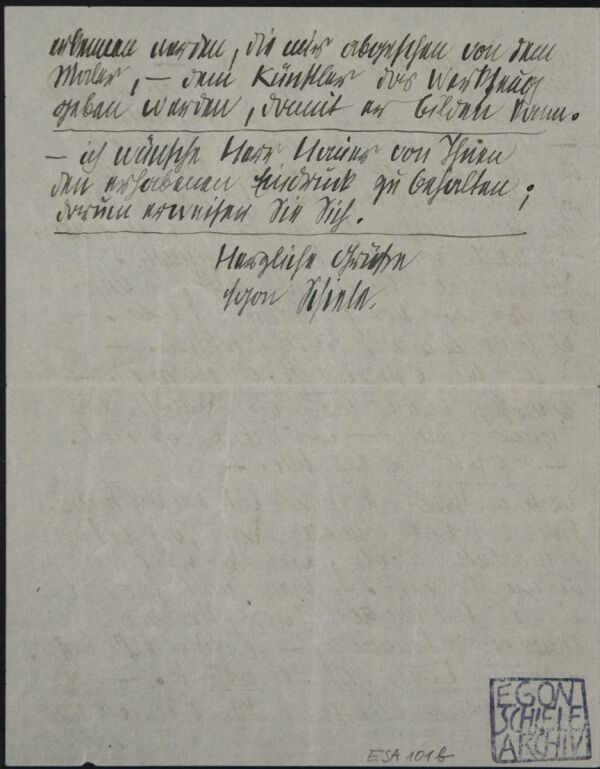 erkennen werden, die mir abgesehen von dem
Maler, – dem Künstler das Werkzeug
geben werden, damit er bilden kann.
– ich wünsche Herr Hauer von Ihnen
den erhabenen Eindruck zu behalten;
darum erweisen Sie Sich.
Herzliche Grüße
Egon Schiele.
ESA 101b
EGON
SCHIELE
ARCHIV